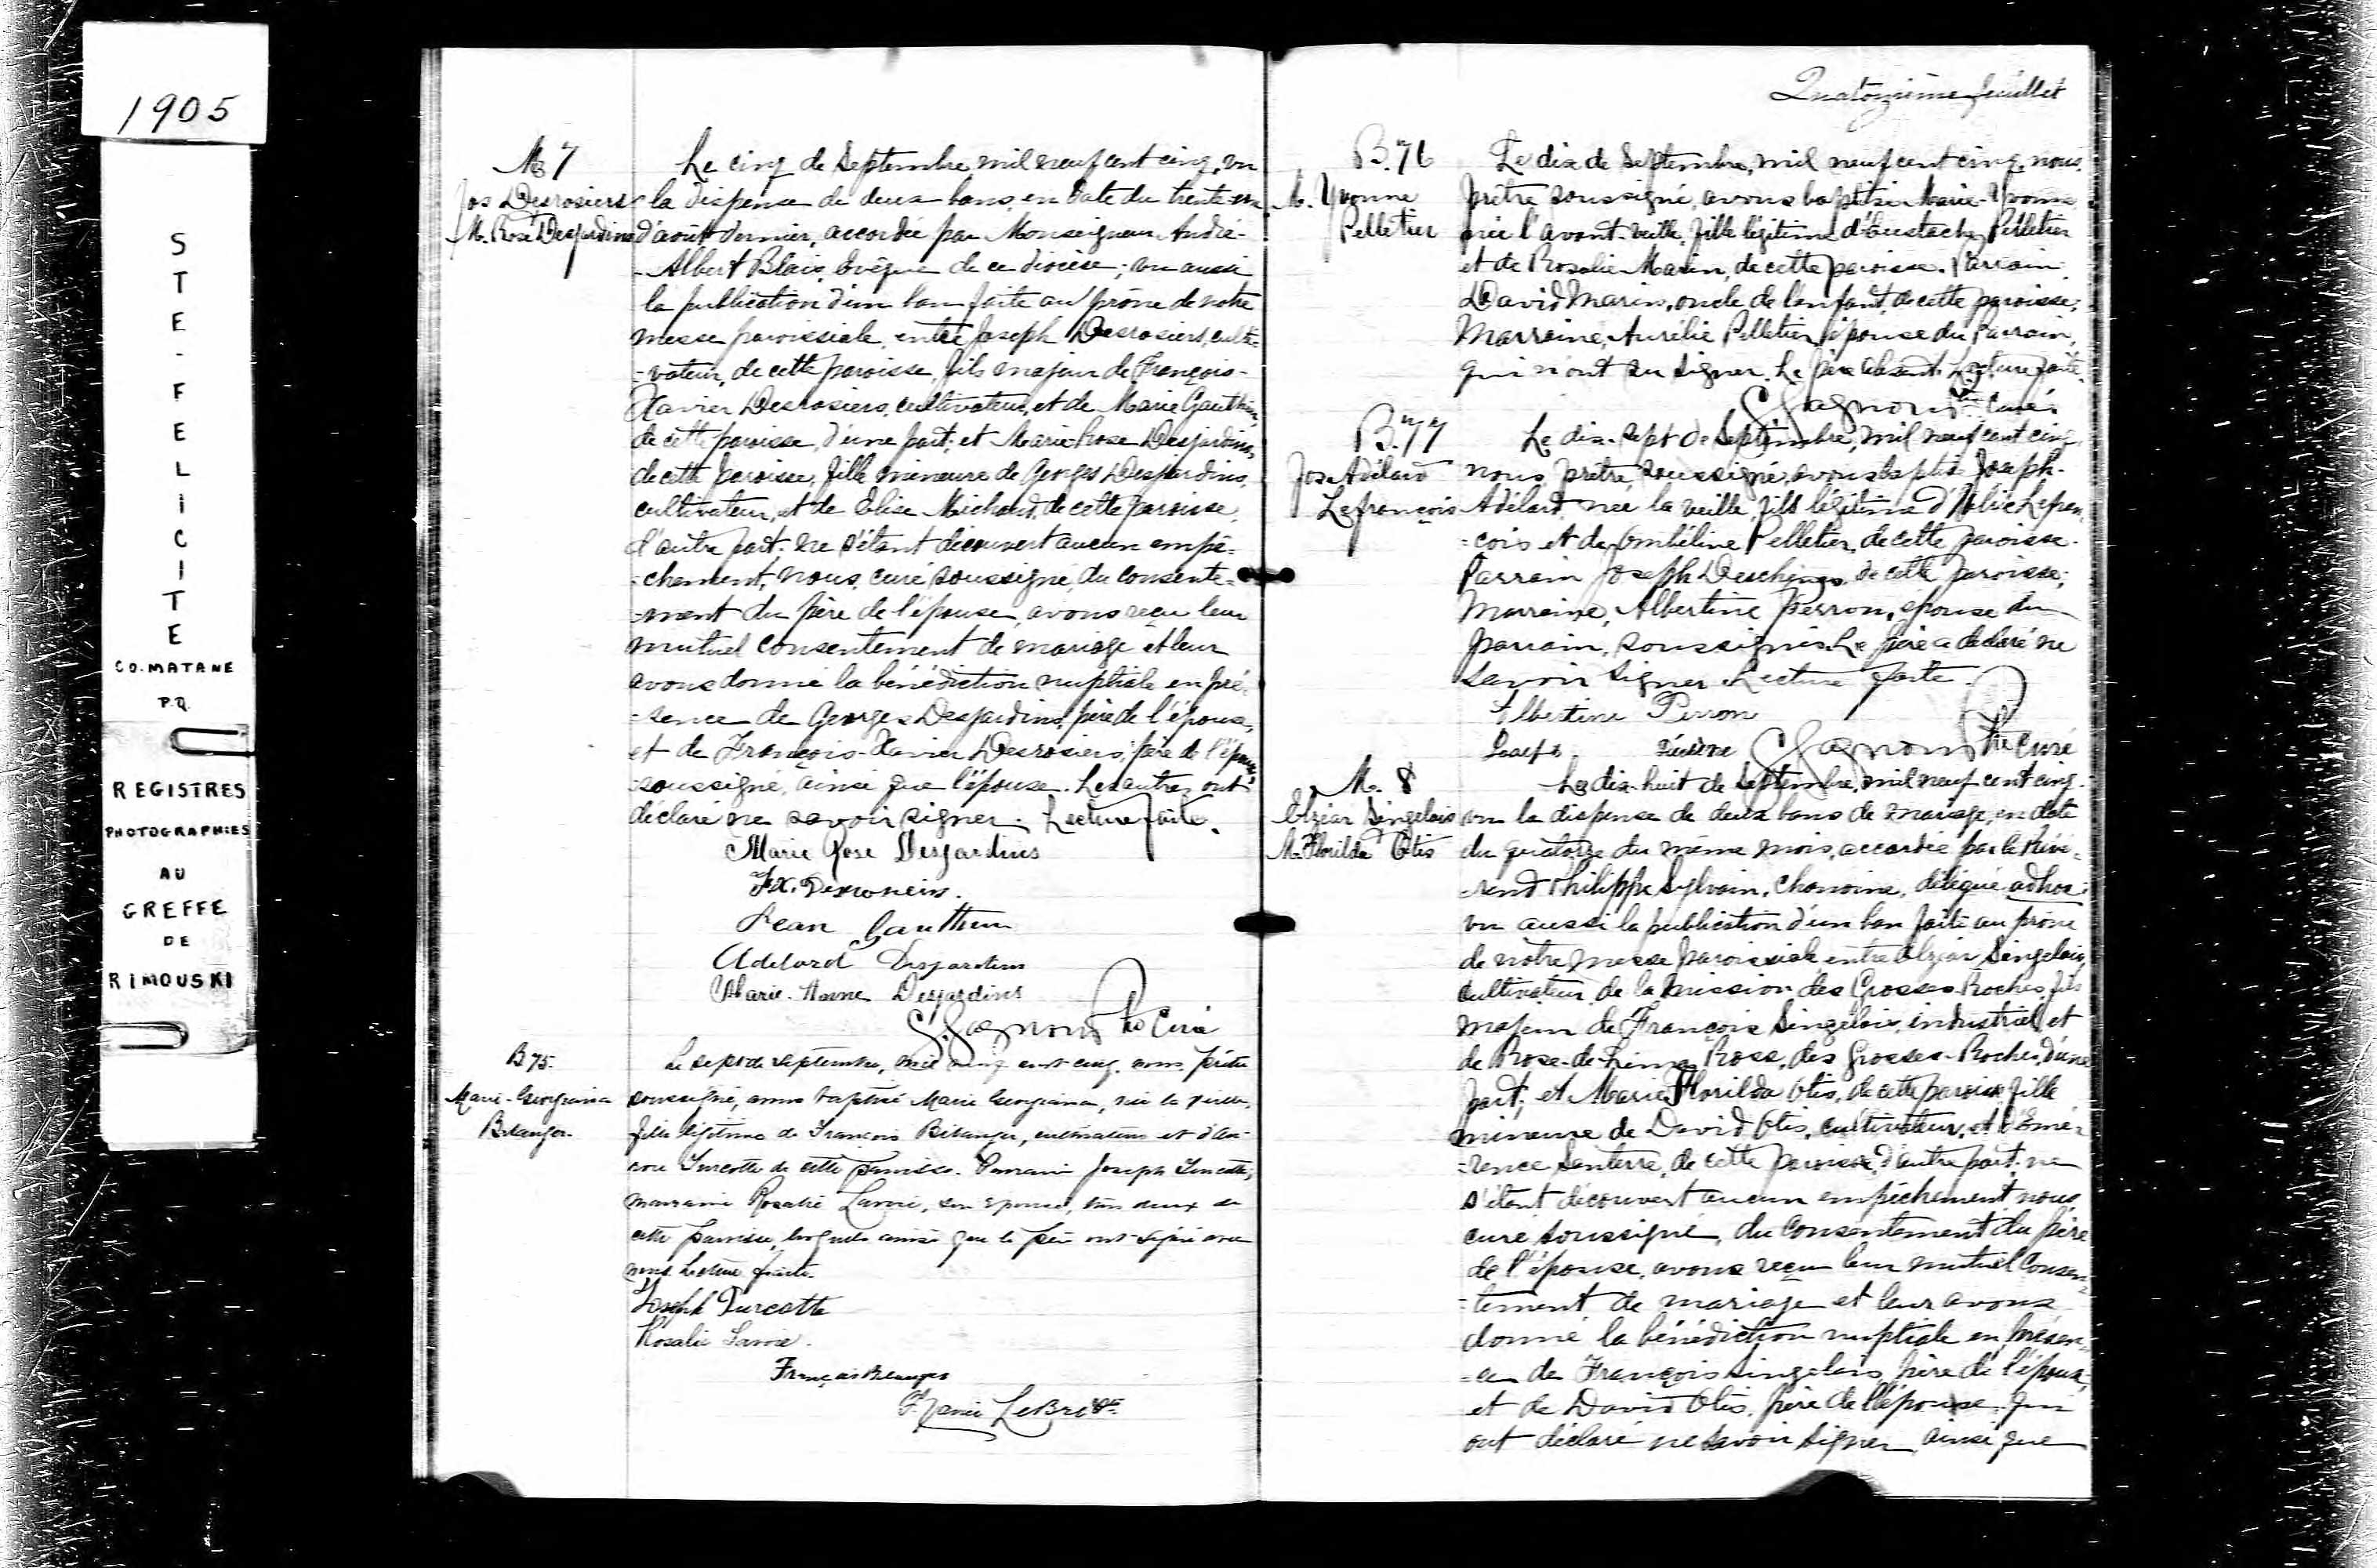 1905
STE-FELICITE
CO. MATANE
P.Q.
REGISTRES
PHOTOGRAPHIES
AU
GREFFE
DE
RIMOUSKI
M 7
Jos Desrosiers
M. Rose Desjardins
Le cinq de Septembre, mil neuf cent cinq, vu
la dispense de deux bans, en date du trente-un
d'août dernier, accordée par Monseigneur André-
-Albert Blais, Evêque de ce diocèse; vu aussi
la publication d'un ban faite au prône de notre
messe paroissiale, entre Joseph Desrosiers, culti-
=vateur, de cette paroisse, fils majeur de François-
Xavier Desrosiers, cultivateur, et de Marie Gauthier,
de cette paroisse, d'une part; et Marie-Rose Desjardins,
de cette paroisse, fille mineure de Georges Desjardins,
cultivateur, et de Elise Michaud, de cette paroisse,
d'autre part; ne s'étant découvert aucun empê=
=chement, nous, curé soussigné, du consente=
=ment du père de l'épouse, avons reçu leur
mutuel consentement de mariage et leur
avons donné la bénédiction nuptiale en pré=
=sence de Georges Desjardins, père de l'épouse,
et de François-Xavier Desrosiers, père de l'époux,
soussigné, ainsi que l'épouse. Les autres ont
déclaré ne savoir signer. Lecture faite.
Marie Rose Desjardins
F.X. Desrosiers.
Jean Gauthier
Adelard Desjardins
Marie-Anne Desjardins
Gagnon Ptre Curé
B 75.
Marie-Georgianna
Belanger.
Le sept de septembre, mil neuf cent cinq, nous, prêtre
soussigné, avons baptisé Marie Georgianna, née la veille,
fille légitime de François Bélanger, cultivateur et d'
Turcotte de cette paroisse. Parrain Joseph Turcotte,
marraine Rosalie Lavoie, son épouse, tous deux de
cette paroisse, lesquels ainsi que le père ont signé avec
nous. Lecture faite.
Joseph Turcotte
Rosalie Lavoie.
François Belanger
Xavier LeBre
Quatorzième feuillet
B. 76
M. Yvonne
Pelletier
Le dix de Septembre, mil neuf cent cinq, nous,
prêtre soussigné, avons baptisé Marie-Yvonne,
née l'avant-veille, fille légitime d'Eustache Pelletier
et de Rosalie Marin, de cette paroisse. Parrain,
David Marin, oncle de l'enfant, de cette paroisse;
Marraine, Aurélie Pelletier, épouse du parrain,
qui n'ont su signer. Le père absent. Lecture faite.
Gagnon Ptre Curé
B. 77
Jos. Adélard
Lefrançois
Le dix-sept de Septembre, mil neuf cent cinq,
nous, prêtre soussigné, avons baptisé Joseph-
Adélard, née la veille, fils légitime d' Lefran=
=çois et de Ombéline Pelletier, de cette paroisse.
Parrain Joseph Deschênes, de cette paroisse;
Marraine, Albertine Perron, épouse du
parrain, soussignés. Le père a déclaré ne
savoir signer. Lecture faite.
Albertine Perron
Gagnon Ptre Curé
M. 8
Elzéar Singelais
M. Florilda Otis
Le dix-huit de Septembre, mil neuf cent cinq,
vu la dispense de deux bans de mariage, en date
du quatorze du même mois, accordée par le Révé=
=rend Philippe Sylvain, Chanoine, délégué ad hoc;
vu aussi la publication d'un ban faite au prône
de notre messe paroissiale, entre Elzéar Singelais,
cultivateur, de la mission des Grosses-Roches, fils
majeur de François Singelais, industriel, et
de Rose-de-Lima Ross, des Grosses-Roches, d'une
part; et Marie Florilda Otis, de cette paroisse, fille
mineure de David Otis, cultivateur, et d'Emé=
=rence Santerre, de cette paroisse, d'autre part; ne
s'étant découvert aucun empêchement, nous,
curé soussigné, du consentement du père
de l'épouse, avons reçu leur mutuel consen=
=tement de mariage et leur avons
donné la bénédiction nuptiale en présen=
=ce de François Singelais, père de l'époux,
et de David Otis, père de l'épouse, qui
ont déclaré ne savoir signer, ainsi que